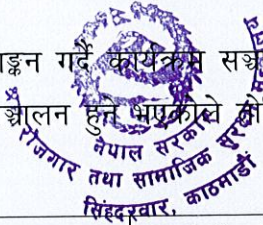 ाङ्कन गर्दै कार्यक्रम सञ्च
ञ्चालन हुने भएकोले तो
नेपाल सरकार
रोजगार तथा सामाजिक सुरक्षा
सिंहदरवार, काठमाडौं